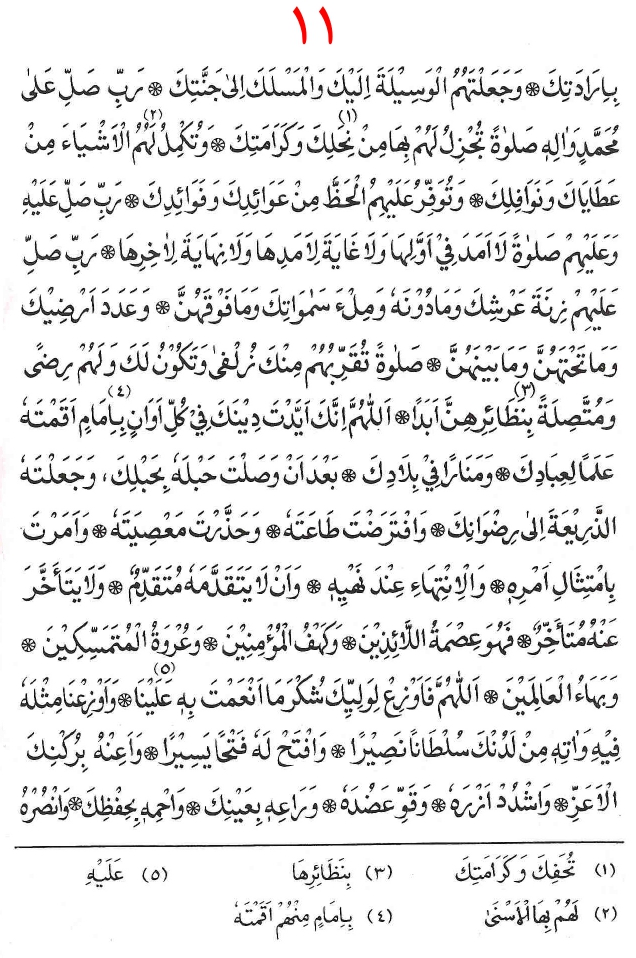 ١١
بِاِرَادَتِكَ ❋ وَجَعَلْتَهُمُ الْوَسِيْلَةَ اِلَيْكَ وَالْمَسْلَكَ اِلىٰ جَنَّتِكَ ❋ رَبِّ صَلِّ عَلىٰ
مُحَمَّدٍ وَاٰلِهٖ صَلوٰةً تُجْزِلُ لَهُمْ بِهَا مِنْ نِحَلِكَ (١) وَكَرَامَتِكَ ❋ وَتُكْمِلُ لَهُمُ (٢) الْاَشْيَاءَ مِنْ
عَطَايَاكَ وَنَوَافِلِكَ ❋ وَتُوَفِّرُ عَلَيْهِمُ الْحَظَّ مِنْ عَوَائِدِكَ وَفَوَائِدِكَ ❋ رَبِّ صَلِّ عَلَيْهِ
وَعَلَيْهِمْ صَلوٰةً لَا اَمَدَ فِيْ اَوَّلِهَا وَلَا غَايَةَ لِاَمَدِهَا وَلَا نِهَايَةَ لِاٰخِرِهَا ❋ رَبِّ صَلِّ
عَلَيْهِمْ زِنَةَ عَرْشِكَ وَمَا دُوْنَهٗ وَمِلْءَ سَمٰوَاتِكَ وَمَا فَوْقَهُنَّ ❋ وَعَدَدَ اَرْضِيْكَ
وَمَا تَحْتَهُنَّ وَمَا بَيْنَهُنَّ ❋ صَلوٰةً تُقَرِّبُهُمْ مِنْكَ زُلْفىٰ وَتَكُوْنُ لَكَ وَلَهُمْ رِضًى
وَمُتَّصِلَةً بِنَظَائِرِهِنَّ (٣) اَبَدًا ❋ اَللّٰهُمَّ اِنَّكَ اَيَّدْتَ دِيْنَكَ فِيْ كُلِّ اَوَانٍ بِاِمَامٍ (٤) اَقَمْتَهٗ
عَلَمًا لِعِبَادِكَ ❋ وَمَنَارًا فِيْ بِلَادِكَ ❋ بَعْدَ اَنْ وَصَلْتَ حَبْلَهٗ بِحَبْلِكَ، وَجَعَلْتَهٗ
الذَّرِيْعَةَ اِلىٰ رِضْوَانِكَ ❋ وَافْتَرَضْتَ طَاعَتَهٗ ❋ وَحَذَّرْتَ مَعْصِيَتَهٗ ❋ وَاَمَرْتَ
بِامْتِثَالِ اَمْرِهٖ ❋ وَالْاِنْتِهَاءِ عِنْدَ نَهْيِهٖ ❋ وَاَنْ لَا يَتَقَدَّمَهٗ مُتَقَدِّمٌ ❋ وَلَا يَتَأَخَّرَ
عَنْهُ مُتَأَخِّرٌ ❋ فَهُوَ عِصْمَةُ اللَّائِذِيْنَ ❋ وَكَهْفُ الْمُؤْمِنِيْنَ ❋ وَعُرْوَةُ الْمُتَمَسِّكِيْنَ ❋
وَبَهَاءُ الْعَالَمِيْنَ ❋ اَللّٰهُمَّ فَاَوْزِعْ لِوَلِيِّكَ شُكْرَ مَا اَنْعَمْتَ بِهٖ عَلَيْنَا (٥) ❋ وَاَوْزِعْنَا مِثْلَهٗ
فِيْهِ وَاٰتِهٖ مِنْ لَدُنْكَ سُلْطَانًا نَصِيْرًا ❋ وَافْتَحْ لَهٗ فَتْحًا يَسِيْرًا ❋ وَاَعِنْهُ بِرُكْنِكَ
الْاَعَزِّ ❋ وَاشْدُدْ اَزْرَهٗ ❋ وَقَوِّ عَضُدَهٗ ❋ وَرَاعِهٖ بِعَيْنِكَ ❋ وَاحْمِهٖ بِحِفْظِكَ ❋ وَانْصُرْهُ
(١) تُحَفِكَ وَكَرَامَتِكَ (٣) بِنَظَائِرِهَا (٥) عَلَيْهِ
(٢) لَهُمْ بِهَا الْاَسْنىٰ (٤) بِاِمَامٍ مِنْهُمْ اَقَمْتَهٗ